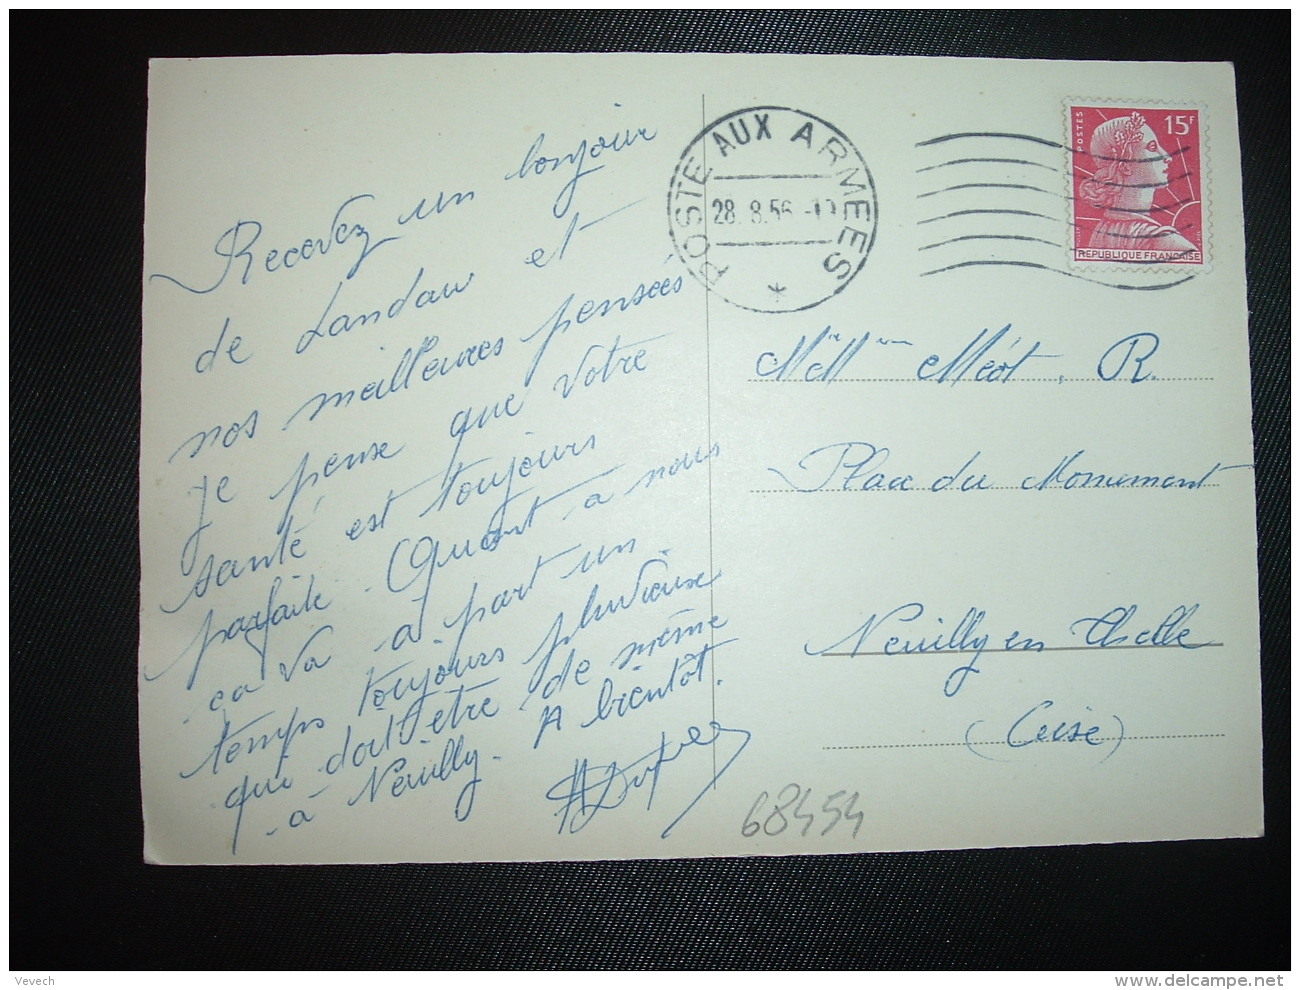 Recevez un bonjour
de Landau et
nos meilleures pensées
je pense que votre
santé est toujours
parfaite. Quant à nous
ça va à part un
temps toujours pluvieux
qui doit être de même
à Neuilly. A bientôt.
POSTE AUX ARMEES
28.8.56
*
POSTES
15F
REPUBLIQUE FRANCAISE
Mr Mme Méot. R.
Place du Monument
Neuilly en Thelle
(Oise)
68454
Vevech
delcampe.net